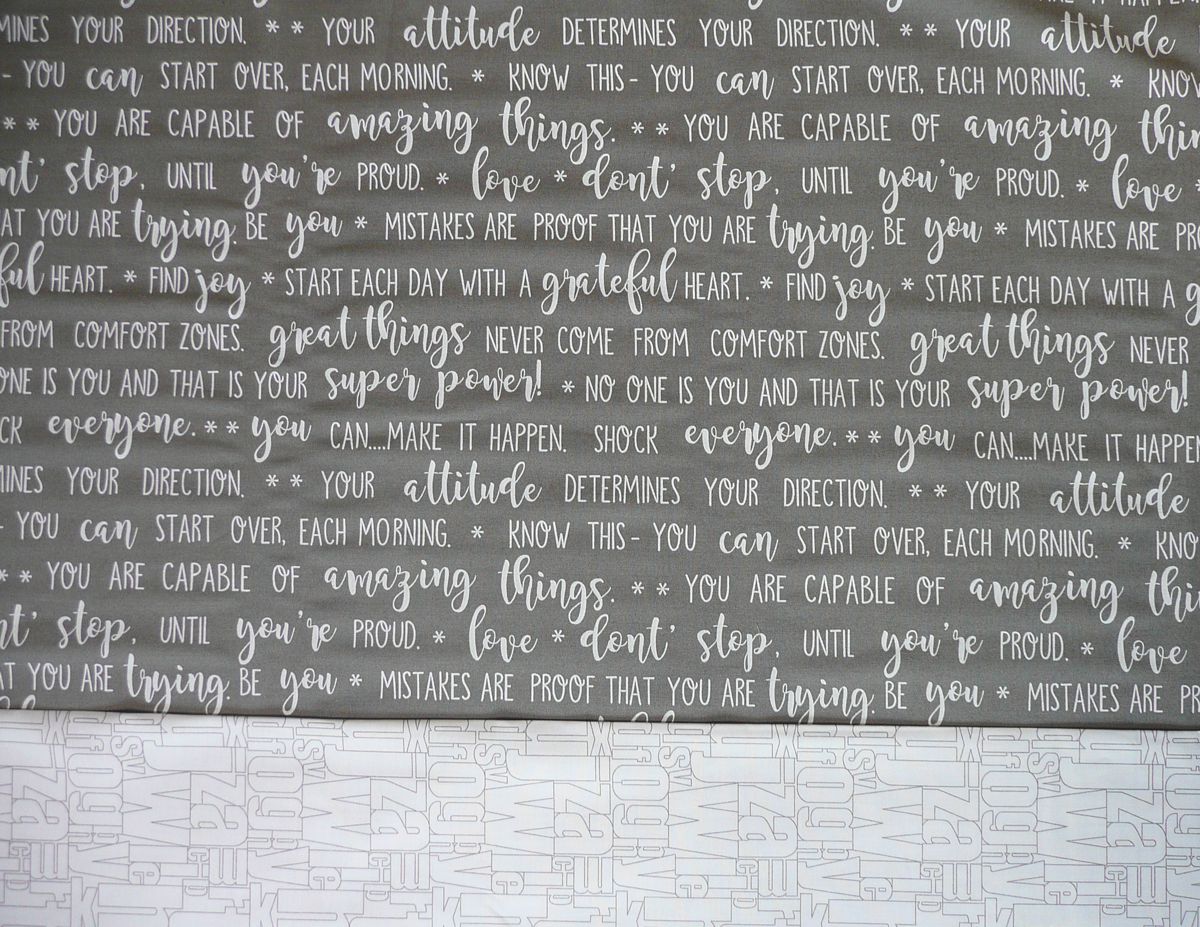 MINES YOUR DIRECTION. ** YOUR attitude DETERMINES YOUR DIRECTION. ** YOUR attitude
- YOU can START OVER, EACH MORNING. * KNOW THIS - YOU can START OVER, EACH MORNING. * KNOW
** YOU ARE CAPABLE OF amazing things. ** YOU ARE CAPABLE OF amazing thin
nt' stop, UNTIL you're PROUD. * love * dont' stop, UNTIL you're PROUD. * love *
AT YOU ARE trying. BE you * MISTAKES ARE PROOF THAT YOU ARE trying. BE you * MISTAKES ARE PRO
ful HEART. * FIND joy * START EACH DAY WITH A grateful HEART. * FIND joy * START EACH DAY WITH A g
FROM COMFORT ZONES. great things NEVER COME FROM COMFORT ZONES. great things NEVER
ONE IS YOU AND THAT IS YOUR super power! * NO ONE IS YOU AND THAT IS YOUR super power!
CK everyone. ** you CAN....MAKE IT HAPPEN. SHOCK everyone. ** you CAN....MAKE IT HAPPEN
MINES YOUR DIRECTION. ** YOUR attitude DETERMINES YOUR DIRECTION. ** YOUR attitude
- YOU can START OVER, EACH MORNING. * KNOW THIS - YOU can START OVER, EACH MORNING. * KNO
** YOU ARE CAPABLE OF amazing things. ** YOU ARE CAPABLE OF amazing thi
nt' stop, UNTIL you're PROUD. * love * dont' stop, UNTIL you're PROUD. * love
AT YOU ARE trying. BE you * MISTAKES ARE PROOF THAT YOU ARE trying. BE you * MISTAKES ARE PR